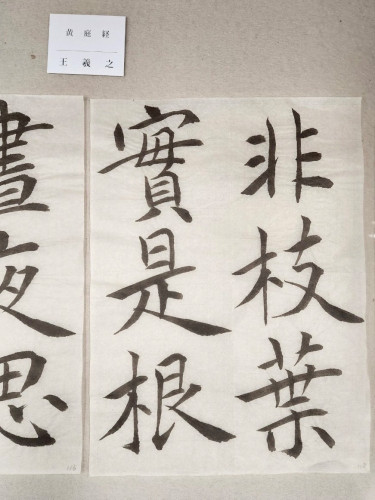 黄庭経
王羲之
非枝葉
實是根
晝夜思